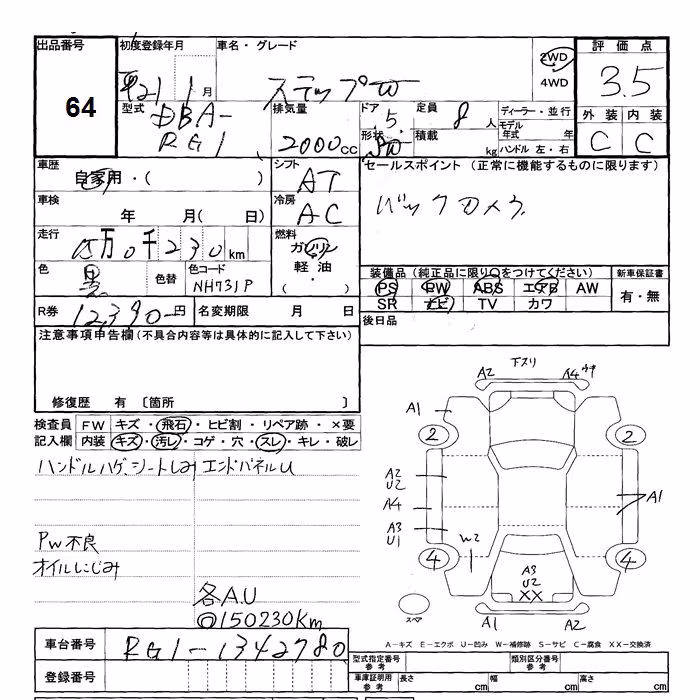 出品番号 初度登録年月 車名・グレード 2WD 4WD 評価点
64 平21 1月 ステップW 3.5
型式 DBA-RG1 排気量 2000cc ドア 5 定員 8人 ディーラー・並行
形状 SW 積載 kg モデル年式 年 ハンドル 左・右
外装 内装
C C
車歴 自家用・( ) シフト AT
セールスポイント (正常に機能するものに限ります)
バックカメラ
車検 年 月( 日) 冷房 AC
走行 15万0千230km 燃料 ガソリン 軽油・( )
色 黒 色替 色コード NH731P
装備品(純正品に限り○をつけてください) 新車保証書
PS PW ABS エアB AW 有・無
SR ナビ TV カワ
R券 12,390円 名変期限 月 日
後日品
注意事項申告欄(不具合内容等は具体的に記入して下さい)
修復歴 有 〔箇所 〕
検査員 FW キズ・飛石・ヒビ割・リペア跡・×要
記入欄 内装 キズ・汚レ・コゲ・穴・スレ・キレ・破レ
ハンドルハゲ、シートしみ エンドパネルU
PW不良
オイルにじみ
各A.U
◎150230Km
下スリ
A2 A4
A1
2 2
A2
U2
A4 A1
A3
U1 W2
4 4
A3
U2
XX
スペア A1 A2
A-キズ E-エクボ U-凹み W-補修跡 S-サビ C-腐食 XX-交換済
車台番号 RG1-1342780
登録番号
型式指定番号 参考 類別区分番号 参考
車庫証明用 参考 長さ cm 幅 cm 高さ cm